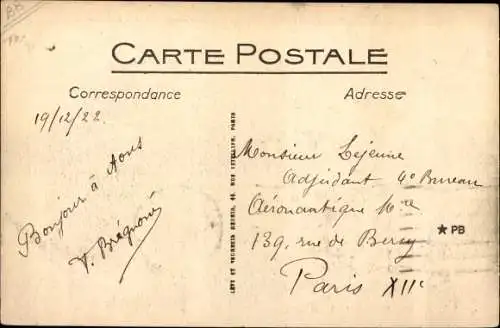 CARTE POSTALE
Correspondance
Adresse
19/12/22
Bonjour à tous
LEVY ET NEURDEIN REUNIS, 44, RUE LETELLIER, PARIS
Monsieur Lejeune
Adjudant 4e Bureau
Aéronautique Mre
139, rue de Bercy
Paris XIIe
★ PB